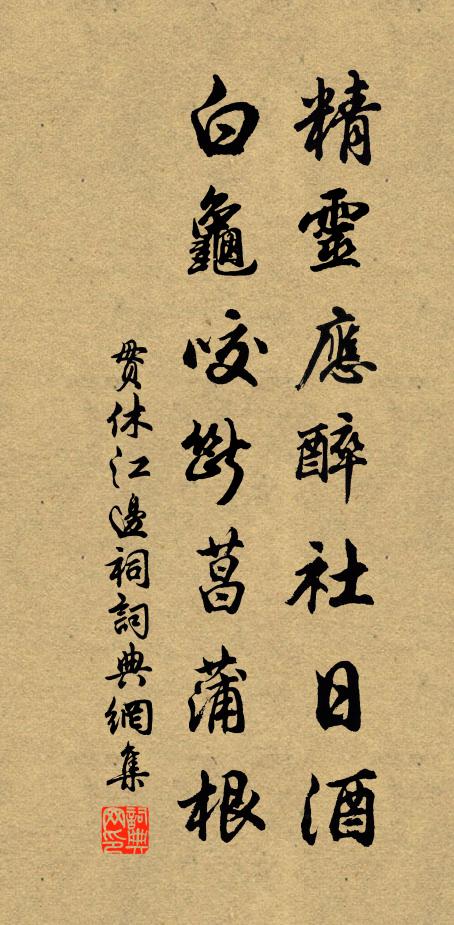 精靈應醉社日酒
白龜咬斷菖蒲根
貫休江邊祠詞典網集
詞典網印